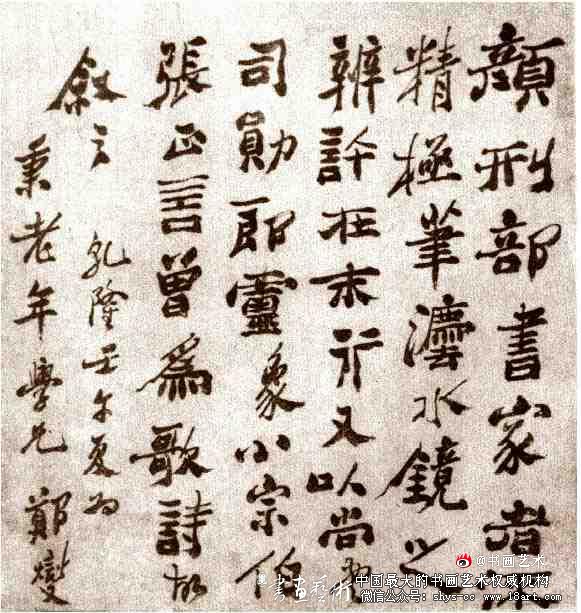 顏刑部書家者
精極筆灋水鏡之
辨許在末行又以尚書
司勛郎盧象小宗伯
張正言曾為歌詩故
敘之
乾隆壬午夏為
秉老年學兄 鄭燮
@书画艺术
書畫藝術
中国最大的书画艺术权威机构
微信公众号:shys-cc www.18art.com